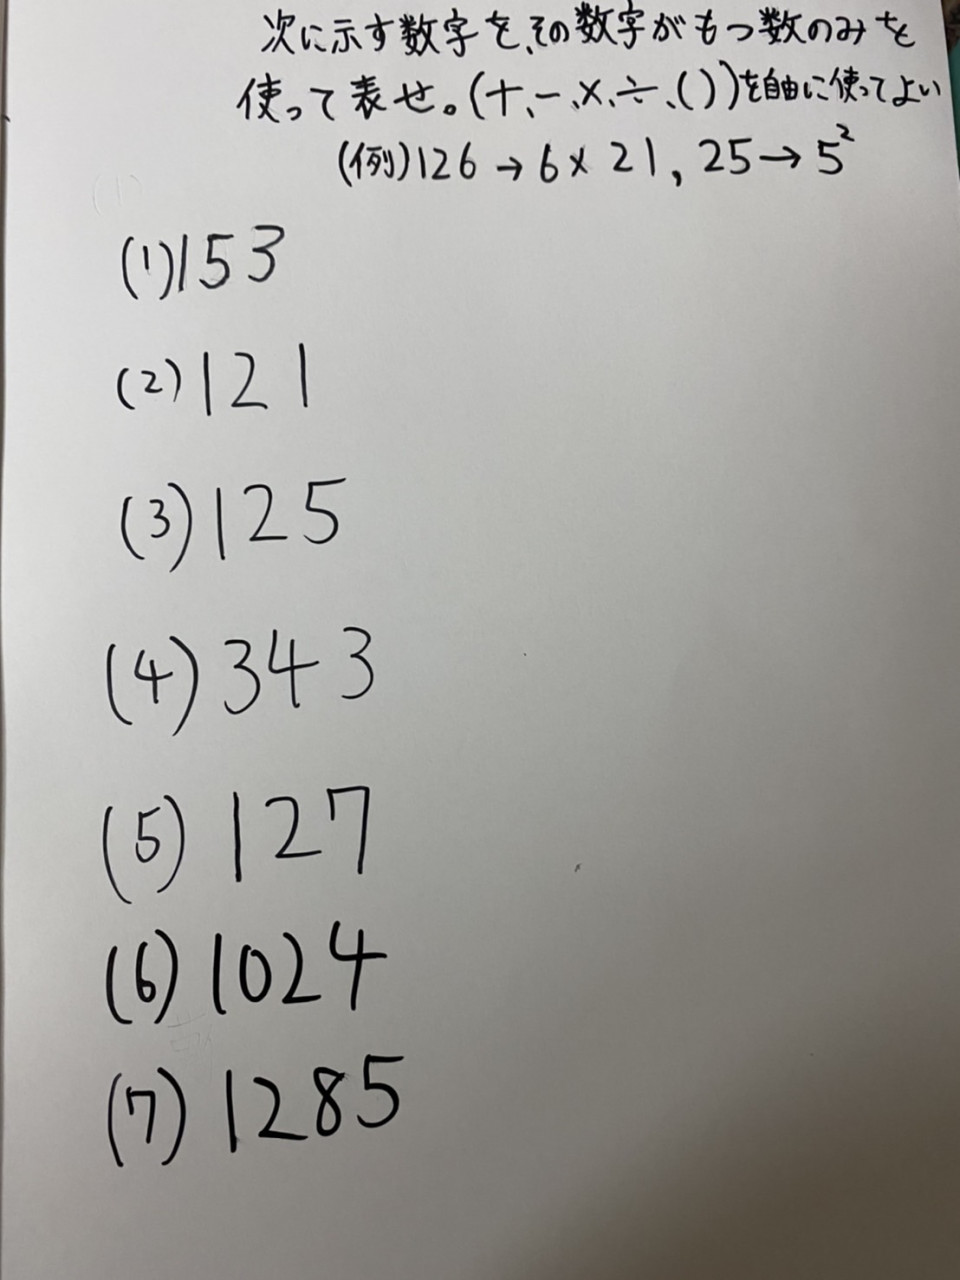 次に示す数字を、その数字がもつ数のみを
使って表せ。(+、-、×、÷、())を自由に使ってよい
(例)126→6×21, 25→5²
(1)153
(2)121
(3)125
(4)343
(5)127
(6)1024
(7)1285